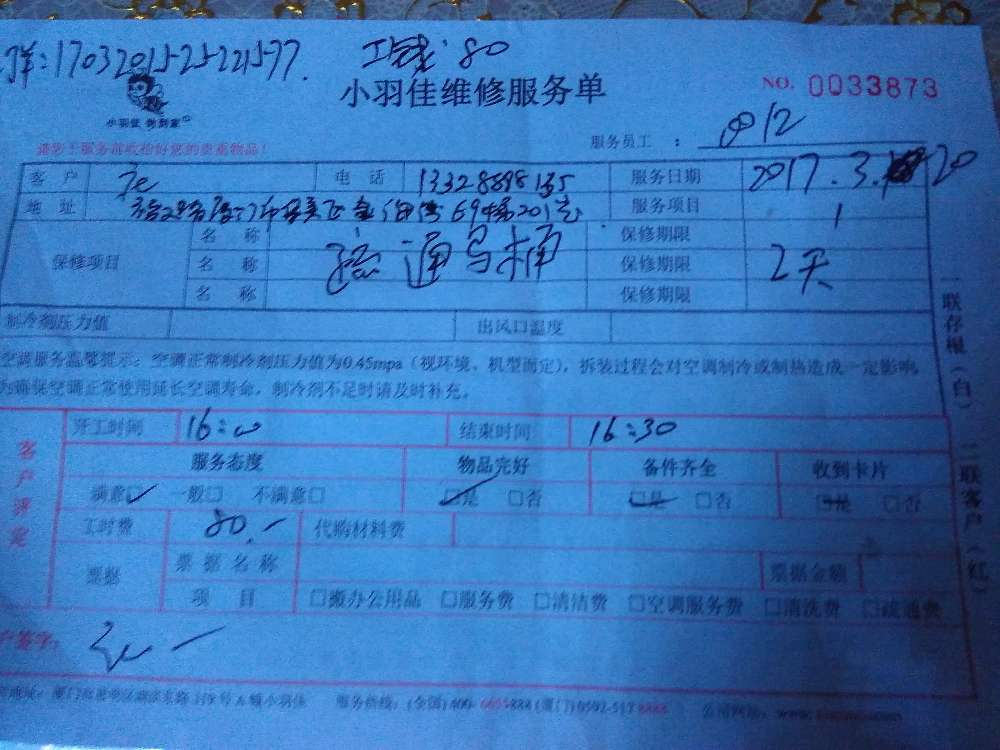 17032015-25-221577. 工钱:80
小羽佳维修服务单 NO. 0033873
小羽佳
服务员工 : 812
服务前收拾好您的贵重物品!
客户 电话 服务日期 2017.3. 20
地址 69 201 服务项目 1
保修项目
名称 疏通马桶 保修期限
名称 保修期限 2天
名称 保修期限
制冷剂压力值 出风口温度
空调服务温馨提示:空调正常制冷剂压力值为0.45mpa(视环境、机型而定),拆装过程会对空调制冷或制热造成一定影响
为确保空调正常使用延长空调寿命,制冷剂不足时请及时补充。
一联存根(白) 二联客户(红)
客户评定
开工时间 16:00 结束时间 16:30
服务态度 物品完好 备件齐全 收到卡片
满意□ 一般□ 不满意□ □是 □否 □是 □否 □是 □否
工时费 80.- 代购材料费
票据 票据名称 票据金额
项目 □搬办公用品 □服务费 □清洁费 □空调服务费 □清洗费 □疏通费
户签字:
服务热线:(全国)400- 888(厦门)0592-517 8888 公司网站:www.